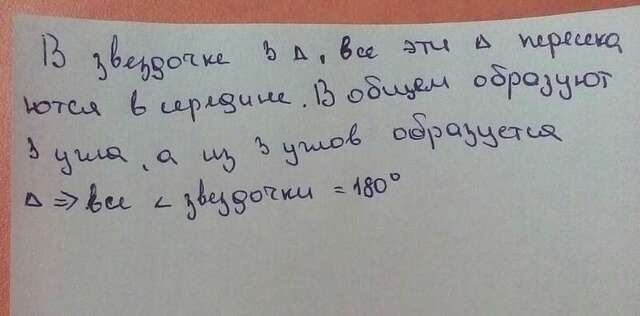 В звездочке 3 Δ, все эти Δ пересека
ются в середине. В общем образуют
3 угла, а из 3 углов образуется
Δ ⇒ все < звездочки = 180°